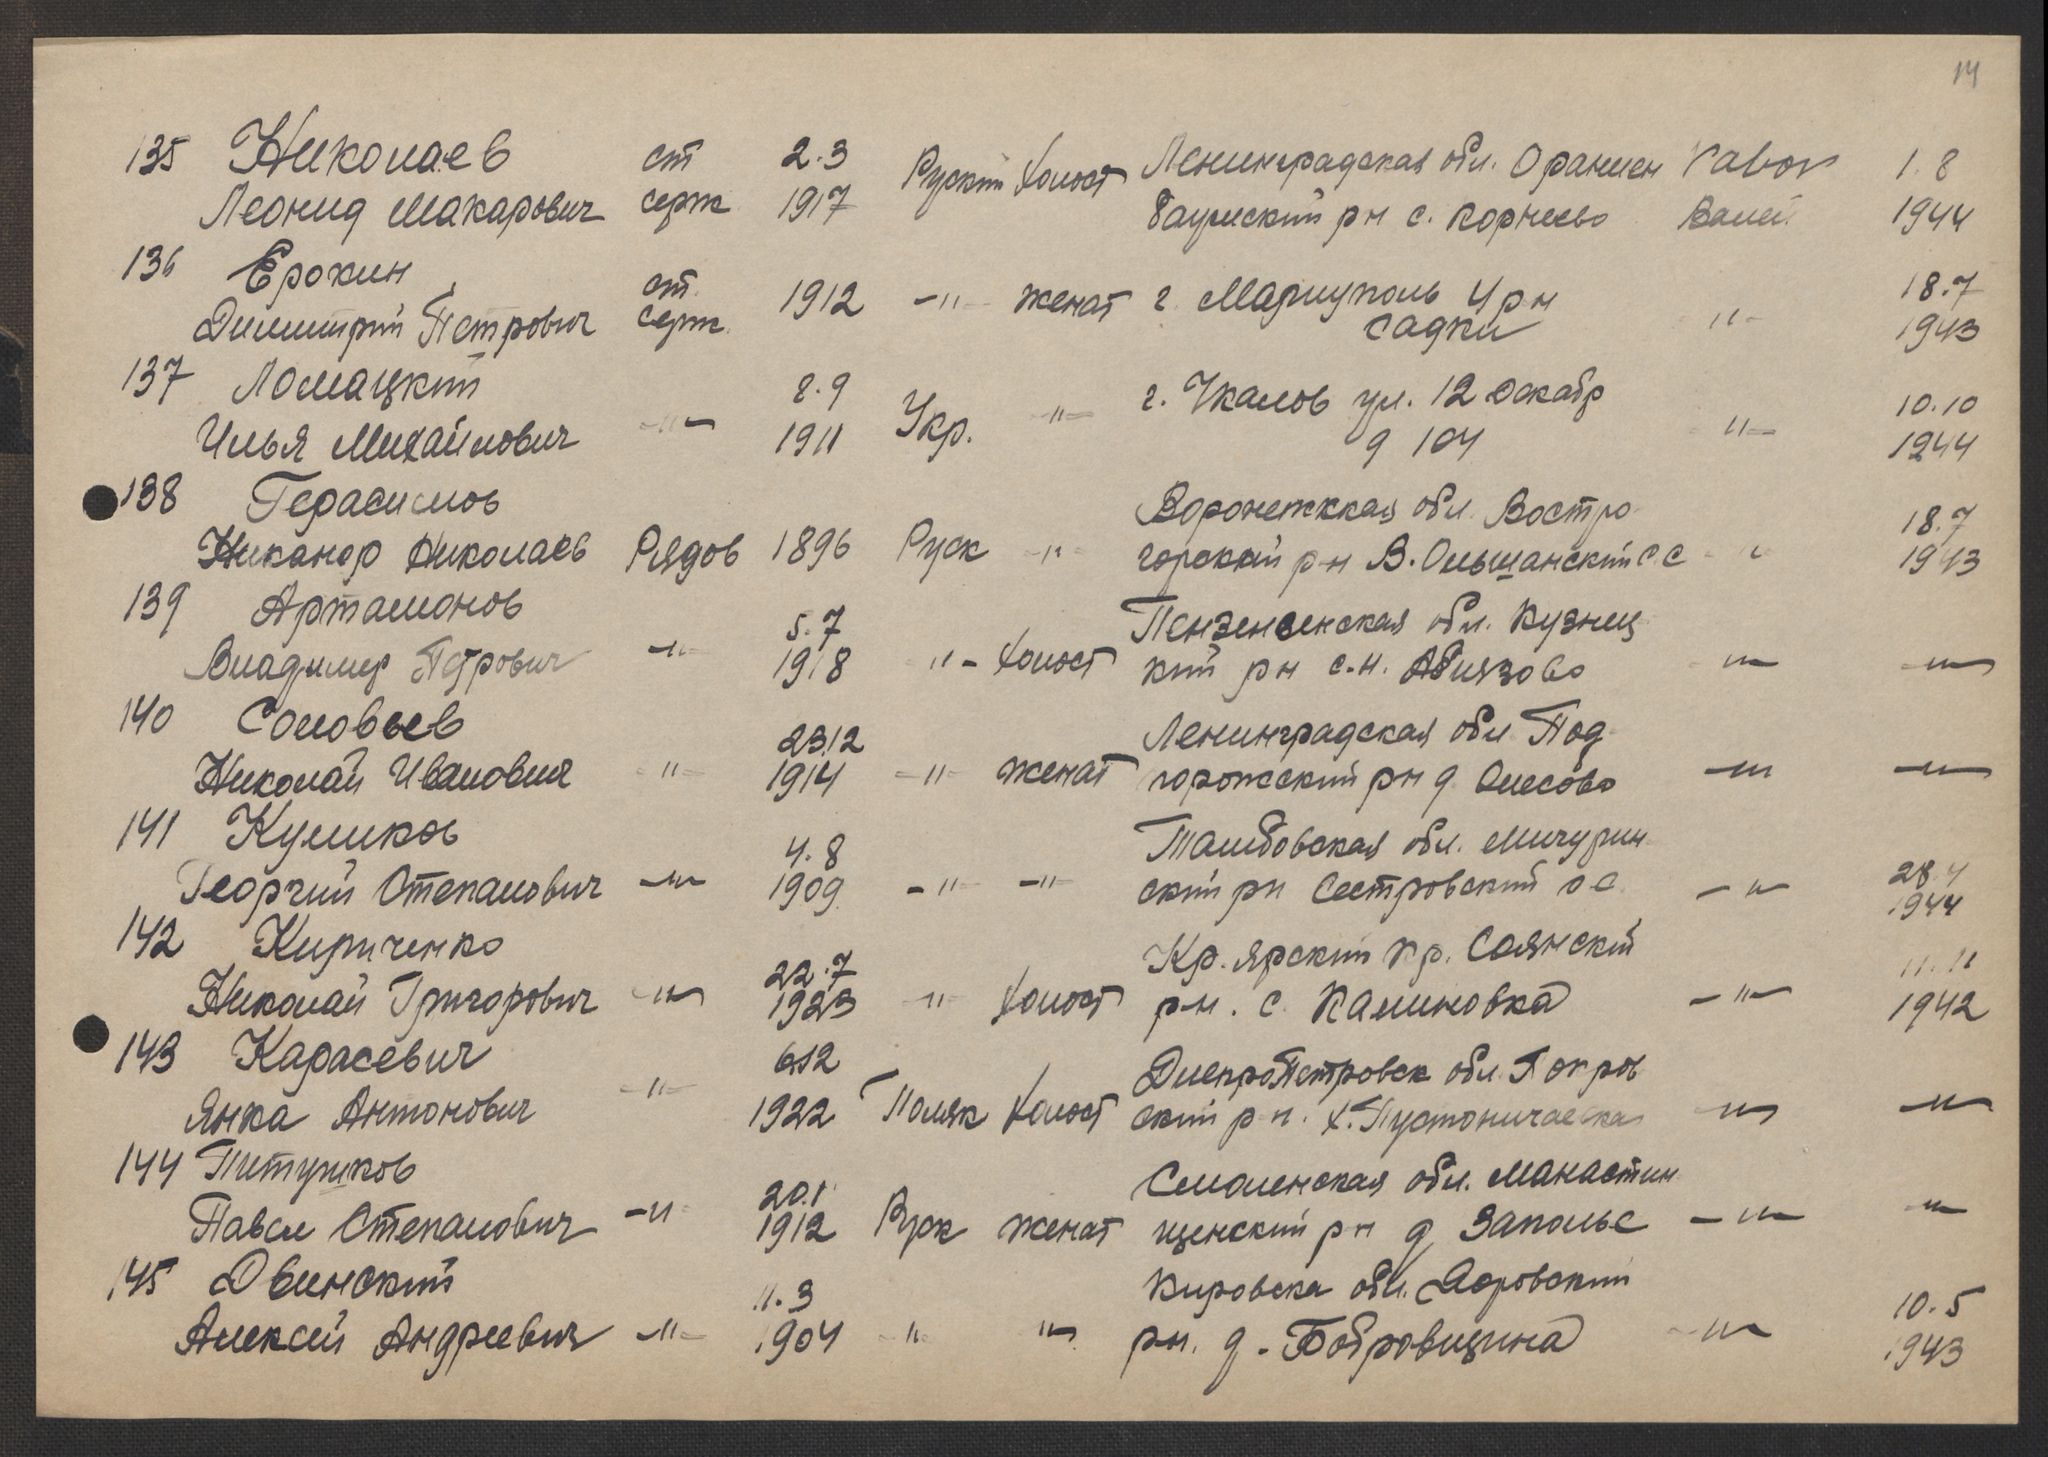 14
135 Николаев ст 2.3 Руский холост Ленинградская обл. Ораниен Vabor 1.8
Леонид Макарович серж 1917 баумский рн с. Корнеево 1944
136 Ерохин ст. 1912 -"- женат г. Мариуполь 4 рн -"- 18.7
Димитрий Петрович серж. садки 1943
137 Ломацкий -"- 8.9 Укр. -"- г. Чкалов ул. 12 декабр -"- 10.10
Илья Михайлович 1911 д 104 1944
138 Герасимов Воронежккая обл. Востро- 18.7
Никанор Николаев Рядов 1896 Руск -"- горский р-н В. Ольшанский с с -"- 1943
139 Артамонов 5.7 Пензенсенская обл. Кузнец
Владимир Петрович -"- 1918 -"- холост кий рн с.н. Абиязово -"- -"-
140 Соловьев 23.12 Ленинградская обл Под-
Николай Иванович -"- 1914 -"- женат горожский рн д. -"- -"-
141 Куликов 4.8 Тамбовская обл. Мичурин-
Георгий Степанович -"- 1909 -"- -"- ский рн Сестровский с с. -"- 28.4 1944
142 Кириченко 22.7 Кр. ярский кр. Саянский 11.11
Николай Григорович -"- 1923 -"- холост р-н. с. Калиновка -"- 1942
143 Карасевич 6.12 ДнепроПетровск обл. Покров
Янка Антонович -"- 1922 Поляк холост ский р-н. х. -"- -"-
144 Питушков 20.1 Смоленская обл. Манастин
Павел Степанович -"- 1912 Руск женат щенский рн д Заполье -"- -"-
145 Двинский 11.3 Кировска обл. 10.5
Алексей Андреевич -"- 1904 -"- -"- рн. д. Бобровщина -"- 1943